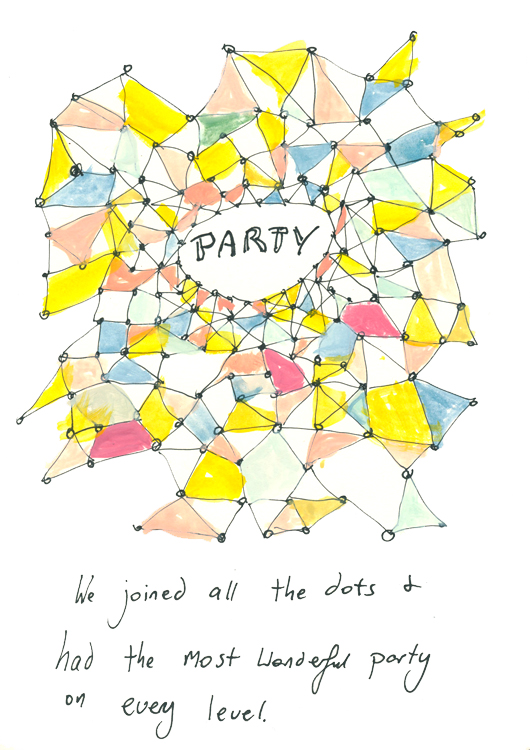 PARTY
We joined all the dots &
had the most Wonderful party
on every level.